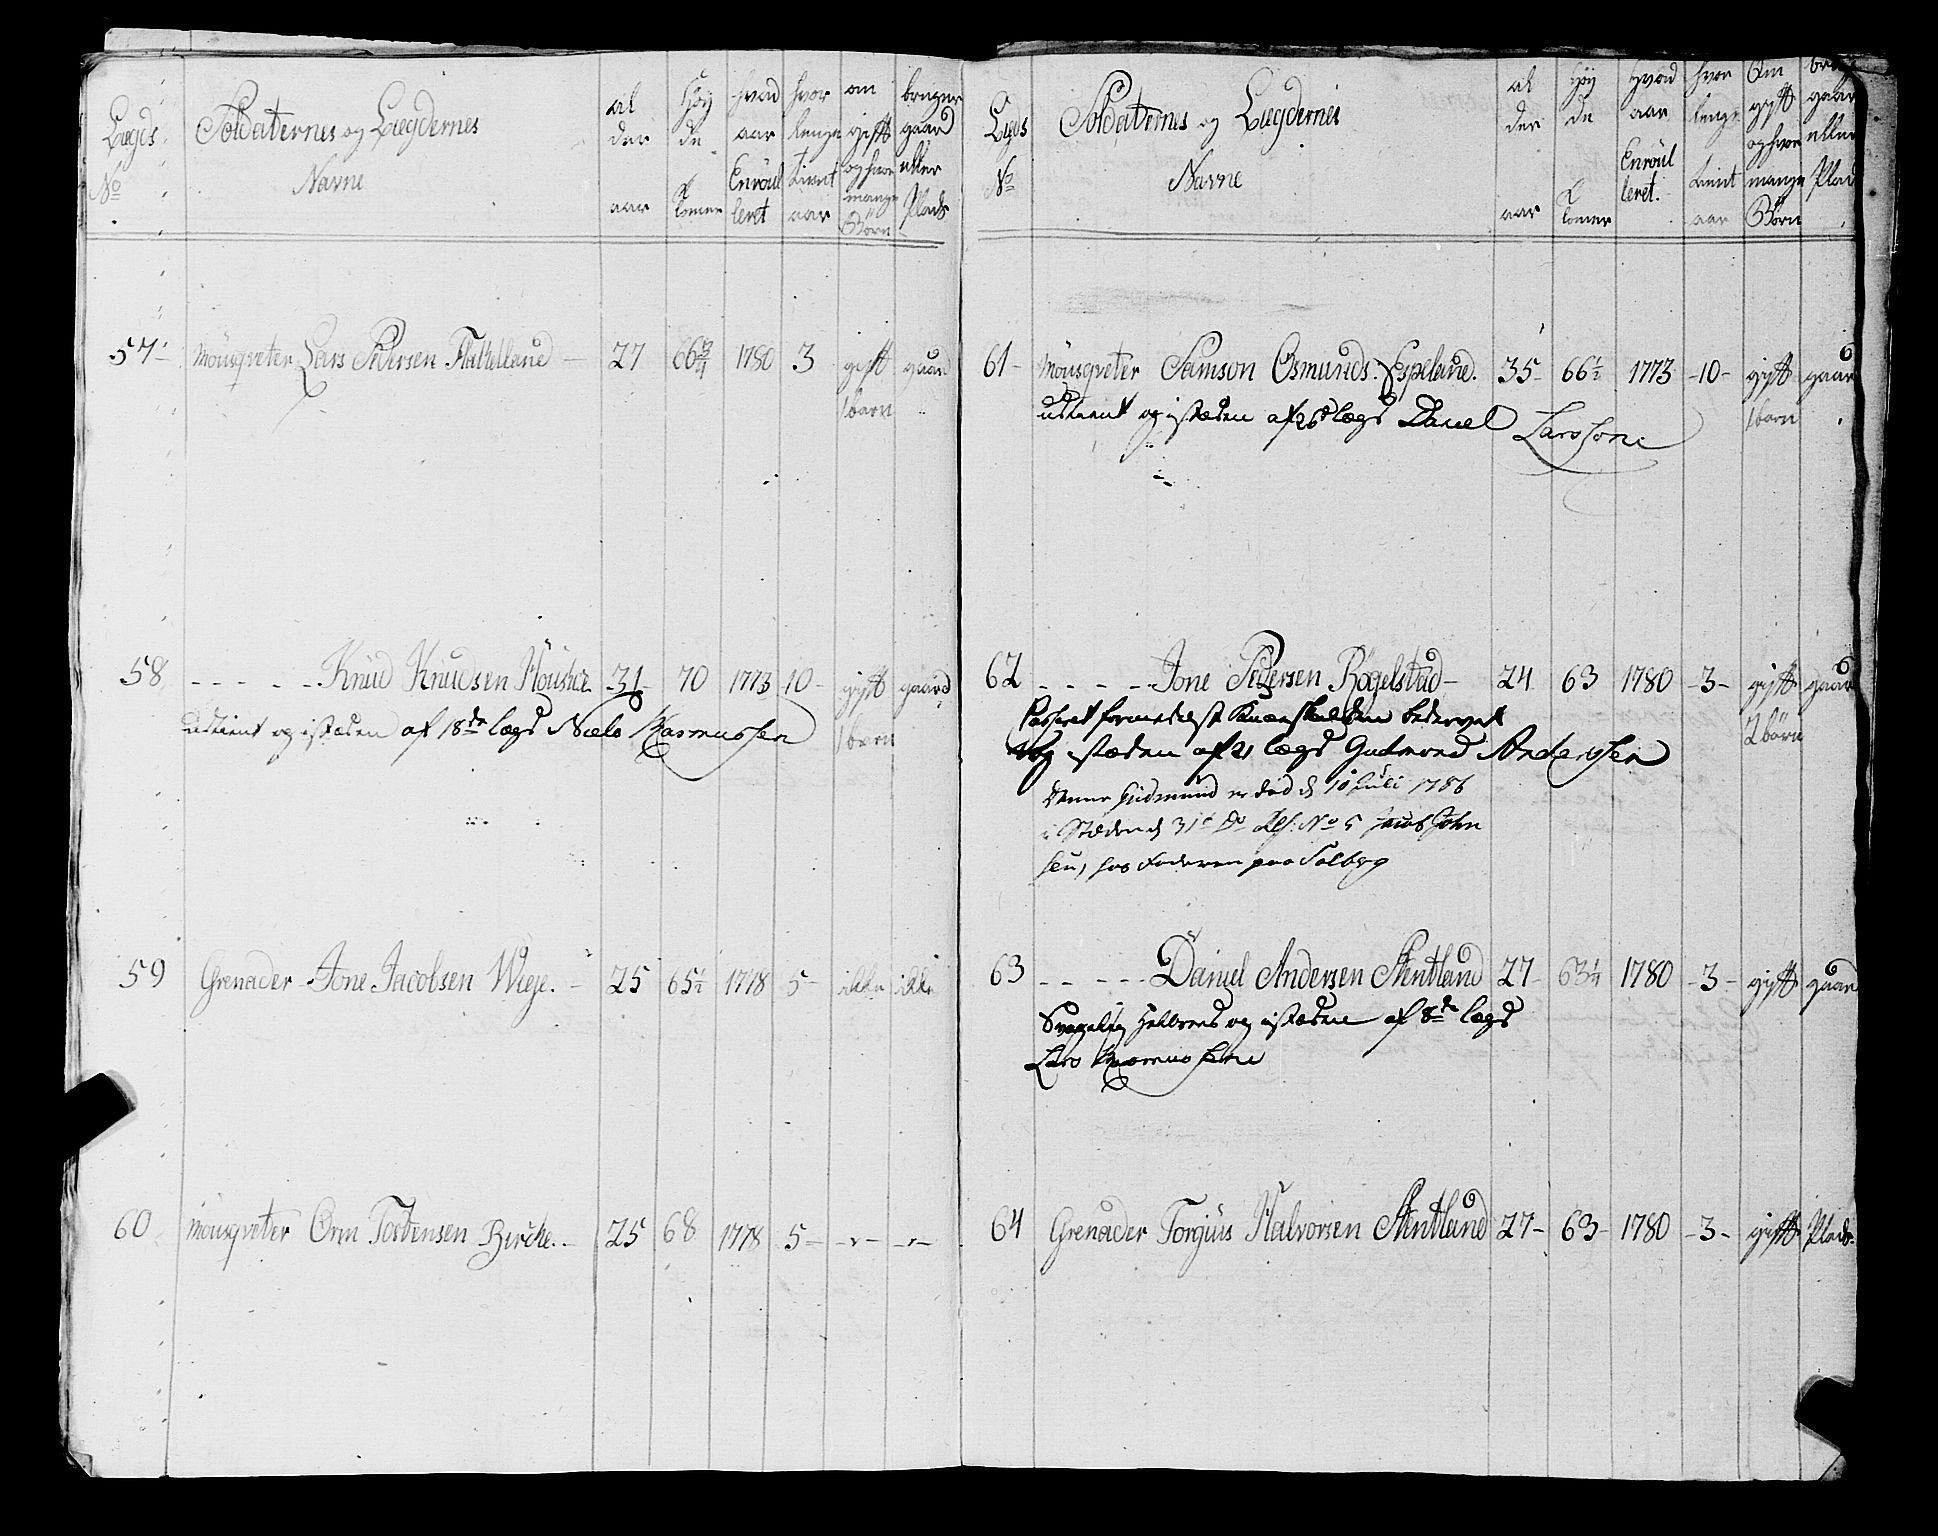 Lægds No | Soldaternes og Lægdernes Navne | al der aar | Høy de tomer | hvad aar Enroul leret | hvor lenge tient aar | om gift og hvor mange Børn | bruger gaard eller Plads
57 | Mousqveter Lars Pedersen | 27 | 66 3/4 | 1780 | 3 | gift 1 barn | gaard
58 | - - - - - Knud Knudsen | 31 | 70 | 1773 | 10 - | gift 1 barn | gaard
udtient og istæden af 18de lægd Niels Rasmussen
59 | Grenader Jone Jacobsen Wieje. | 25 | 65 1/2 | 1778 | 5 - | ikke | ikke
60 | Mousqveter Orm Tostensen Bircke. - | 25 | 68 | 1778 | 5 - | - " - | - " -
Lægds No | Soldaternes og Lægdernes Navne | al der aar | Høy de tomer | Hvad aar Enroul leret. | hvor lenge tient aar | Om gift og hvor mange Børn | gaar eller Plad
61 - | Mousqveter Samson Osmunds. Espeland. | 35 - | 66 1/2 | 1773 | - 10 - | gift 1 barn | gaar
udtient og istæden af 26de lægd Daniel Larssone
62 | - - - - - Jone Pedersen Røgelstad - | 24 | 63 | 1780 | - 3 - | gift 2 børn | gaar
Casseret formedelst
og istæden af 21 lægd Gudmond Andersen
Denne Gudmund er død d 10 Juli 1786
i Stæden d 31te Do No 5 Jacob John
sen, hos Faderen paa Solberg
63 | - - - - - Daniel Andersen Stentland | 27 - | 63 1/4 | 1780 | - 3 - | gift | gaard
Svagelig Helbreds og istæden af 8de lægd
Lars Rasmussene
64 | Grenader Torgius Halvorsen Stentland | 27 - | 63 - | 1780 | - 3 - | gift | Plads.